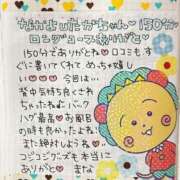 150分
ロングコースありがとう
150分でありがとね♡口コミもす
ぐに書いてくれてめっちゃ嬉し
い♡♡♡今回は
背中気持ち良くさく
ちゃったね♡バック
ハグ最高♡お風呂
の時も良かったよね♡
また絶対しようね♡
♡いっぱい
コジコジグッズも本当に
ありがとう